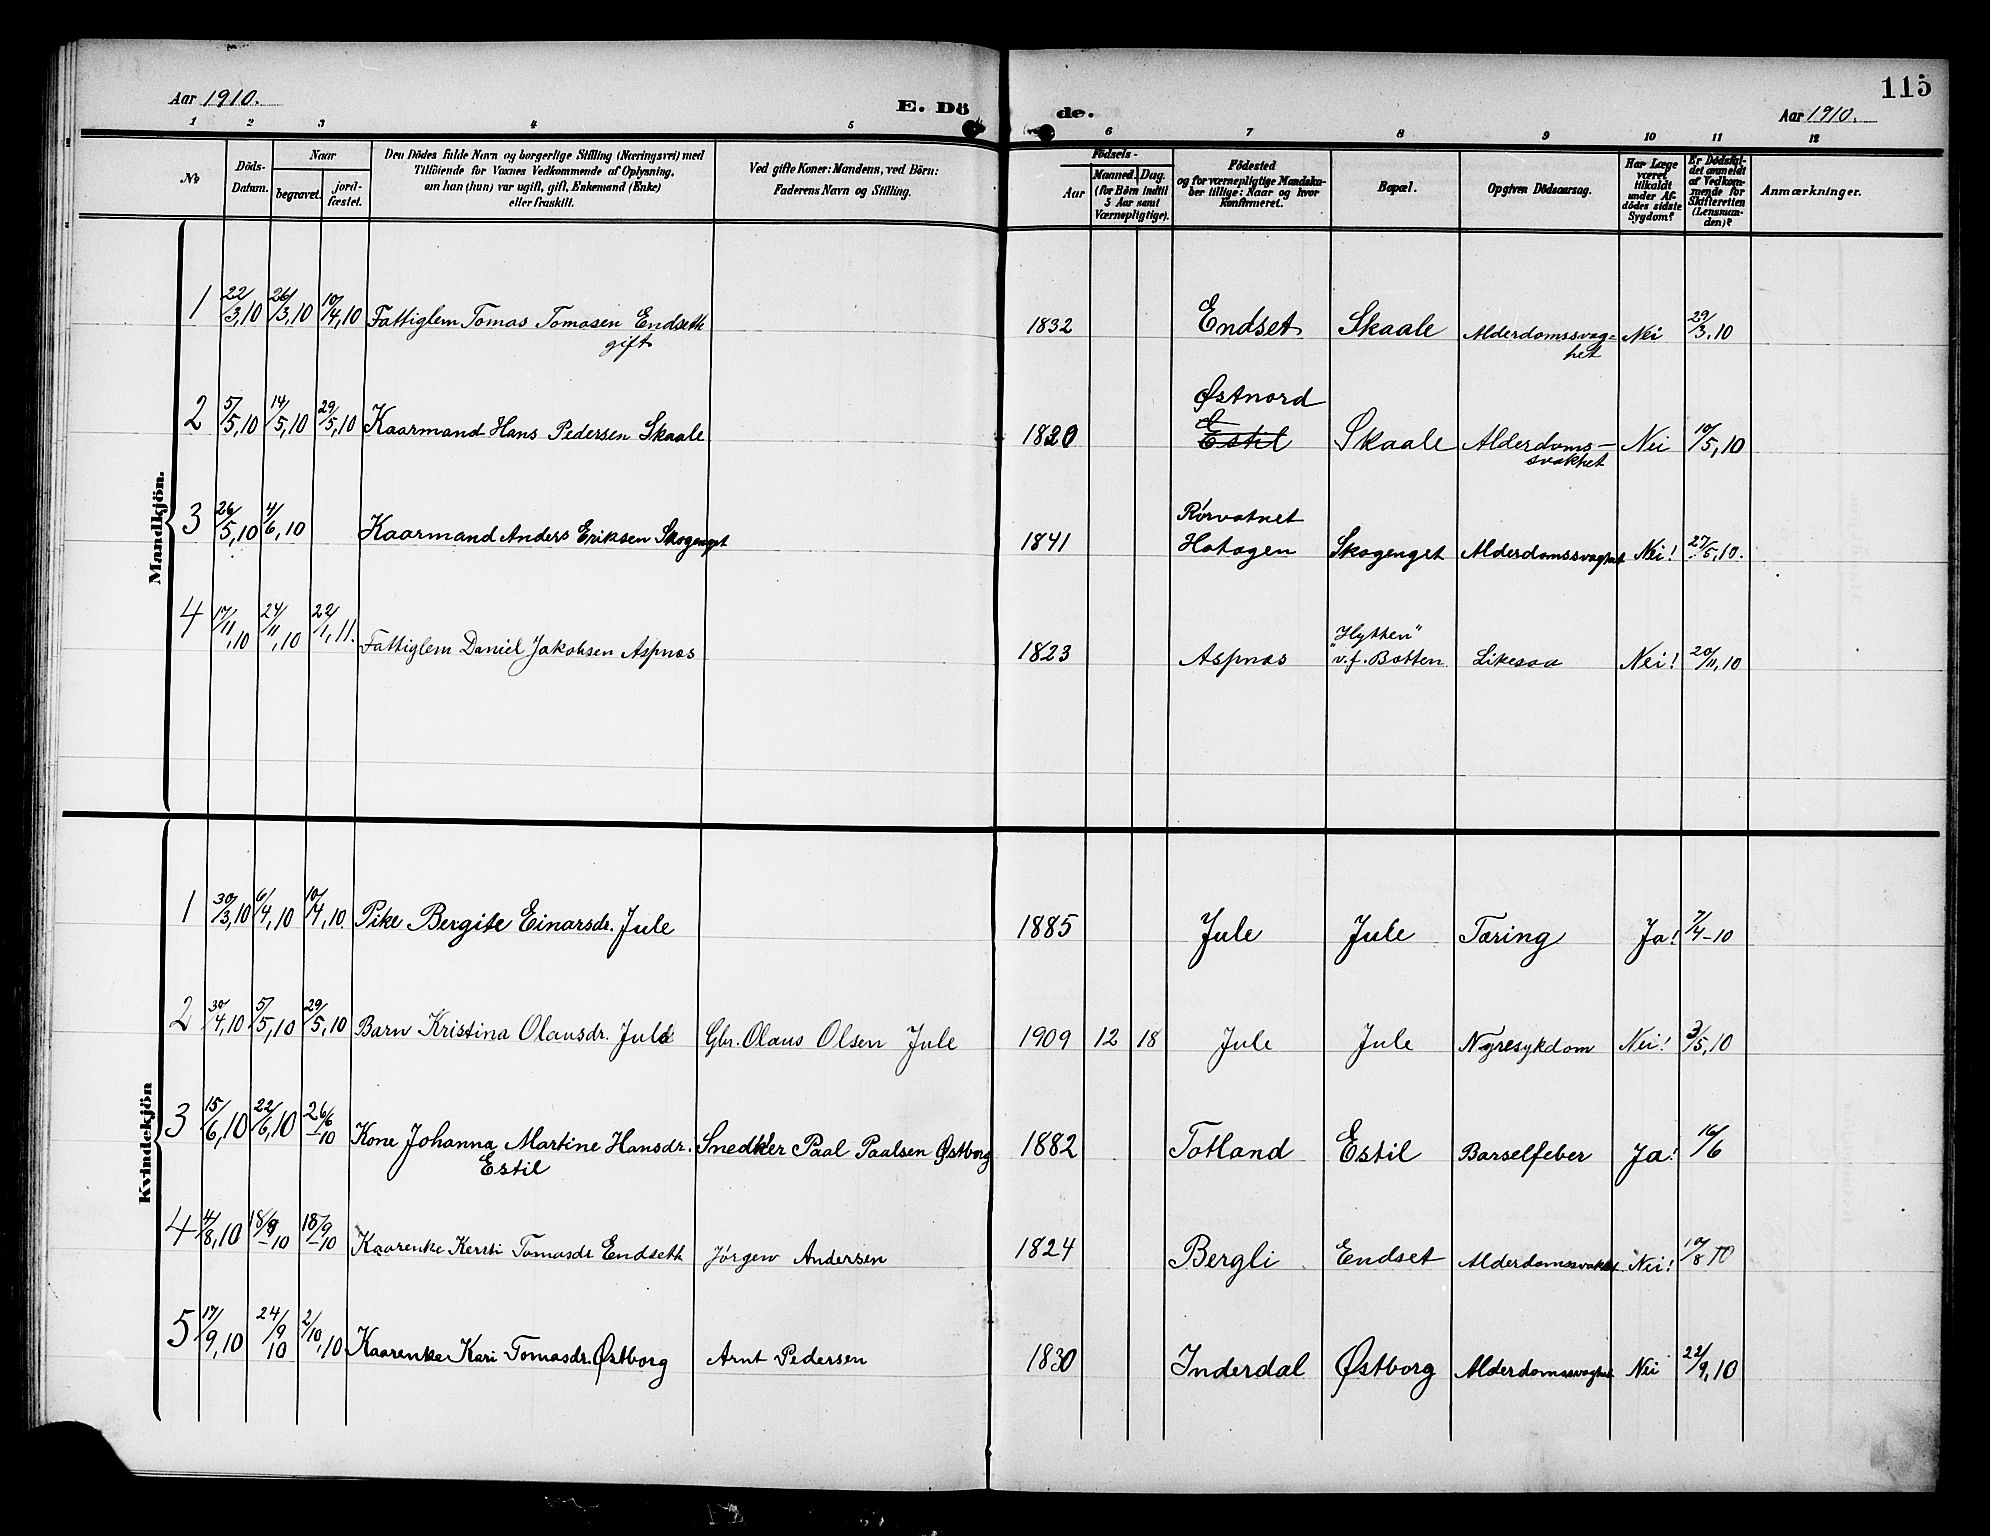 Aar 1910.
E. Dö
de.
Aar 1910.
115
1 2 3 4 5 6 7 8 9 10 11 12
№
Döds-
Datum.
Naar
begravet.
jord-
fæstet.
Den Dödes fulde Navn og borgerlige Stilling (Næringsvei) med
Tilföiende for Voxnes Vedkommende af Oplysning,
om han (hun) var ugift, gift, Enkemand (Enke)
eller fraskilt.
Ved gifte Koner: Mandens, ved Börn:
Faderens Navn og Stilling.
Födsels-
Aar
Maaned. Dag.
(for Börn indtil
5 Aar samt
Værnepligtige).
Födested
og for værnepligtige Mandska-
ber tillige: Naar og hvor
konfirmeret.
Bopæl.
Opgiven Dödsaarsag.
Har Læge
været
tilkaldt
under Af-
dödes sidste
Sygdom?
Er Dödsfal-
det anmeldt
af Vedkom-
mende for
Skifteretten
(Lensman-
den)?
Anmærkninger.
Mandkjön.
1 22/3,10 26/3,10 10/4,10 Fattiglem Tomas Tomasen Endseth 1832 Endset Skaale Alderdomssvag- Nei 29/3,10
gift het
Østnord
2 5/5,10 14/5,10 29/5,10 Kaarmand Hans Pedersen Skaale 1820 Estil Skaale Alderdoms- Nei 10/5,10
svakhet
Rørvatnet
3 26/5,10 4/6,10 Kaarmand Anders Eriksen Skogenget 1841 Hatagen Skogenget Alderdomssvaghet Nei! 27/5,10.
"Hytten"
4 17/11,10 24/11,10 22/1,11. Fattiglem Daniel Jakobsen Aspnas 1823 Aspnas v.f. Botten Likesaa Nei! 20/11,10
Kvindekjön
1 30/3,10 6/4,10 10/4,10. Pike Bergite Einarsdr. Jule 1885 Jule Jule Tæring Ja! 7/4-10
2 30/4,10 5/5,10 29/5,10 Barn Kristina Olausdr. Jule Gbr. Olaus Olsen Jule 1909 12 18 Jule Jule Nyresykdom Nei! 3/5,10
3 15/6,10 22/6,10 26/6-10 Kone Johanna Martine Hansdr. Snedker Paal Paalsen Østborg 1882 Totland Estil Barselfeber Ja! 16/6
Estil
4 4/8,10 18/9-10 18/9-10 Kaarenke Kersti Tomasdr Endseth Jørgen Andersen 1824 Bergli Endset Alderdomssvakhet Nei! 10/8 10
5 17/9,10 24/9 10 2/10,10 Kaarenke Kari Tomasdr. Østborg Arnt Pedersen 1830 Inderdal Østborg Alderdomssvaghet Nei 22/9,10